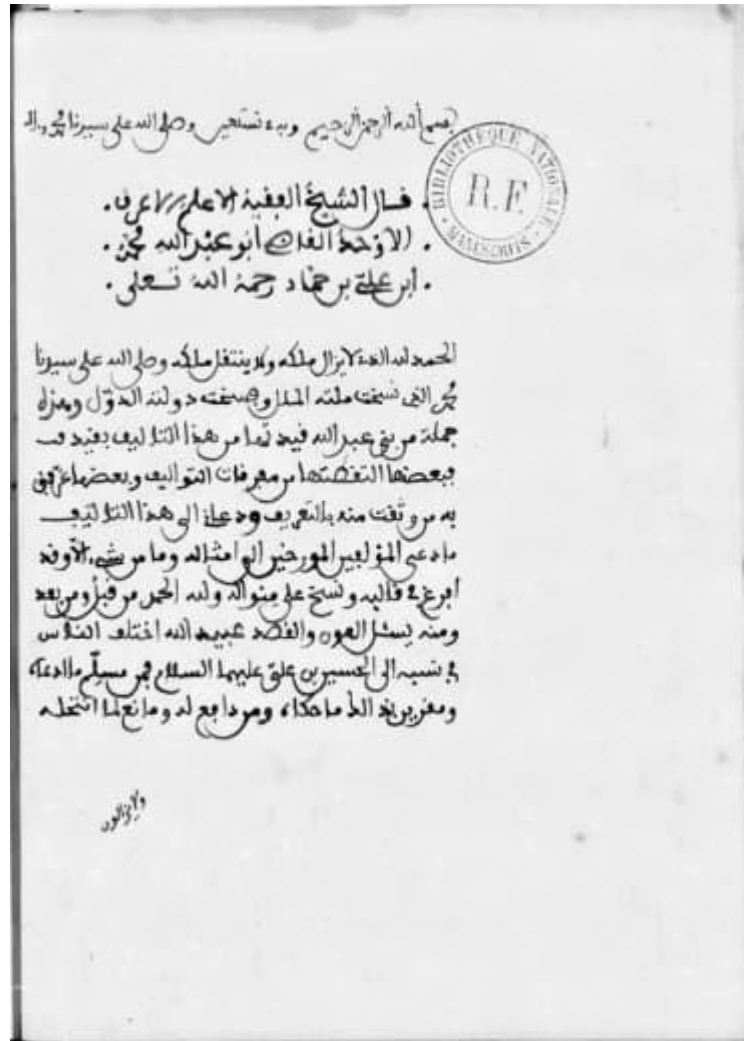 بسم الله الرحمن الرحيم وبه نستعين وصلى الله على سيدنا محمد وءاله
BIBLIOTHEQUE NATIONALE
R.F.
MANUSCRITS
قال الشيخ الفقيه الاعلم الاعرف
الاوحد القاضي أبو عبد الله محمد
ابن علي بن حماد رحمه الله تعلى
الحمد لله الذي لا يزال ملكه ولا ينتقل ملكه وصلى الله على سيدنا
محمد الذي نسخت ملته الملل وفسخت دولته الدول وهذه
جملة من بني عبيد الله قيدتها من هذا التاليف بقيد
فبعضها التقطتها من مفرقات التواليف وبعضها عرفني
به من وثقت منه بالتعريف ودعاني الى هذا التاليف
ما دعى المؤلفين المورخين الى امثاله وما من شيء الا وقد
افرغ في قالبه ونسج على منواله ولله الحمد من قبل ومن بعد
ومنه يسئل العون والقصد عبيد الله اختلف الناس
في نسبه الى الحسين بن علي عليهما السلام فمن مسلم ما ادعاه
ومقر بذالك ما حكاه ومن دافع له ومانع لما انتحله
ولا يزالون